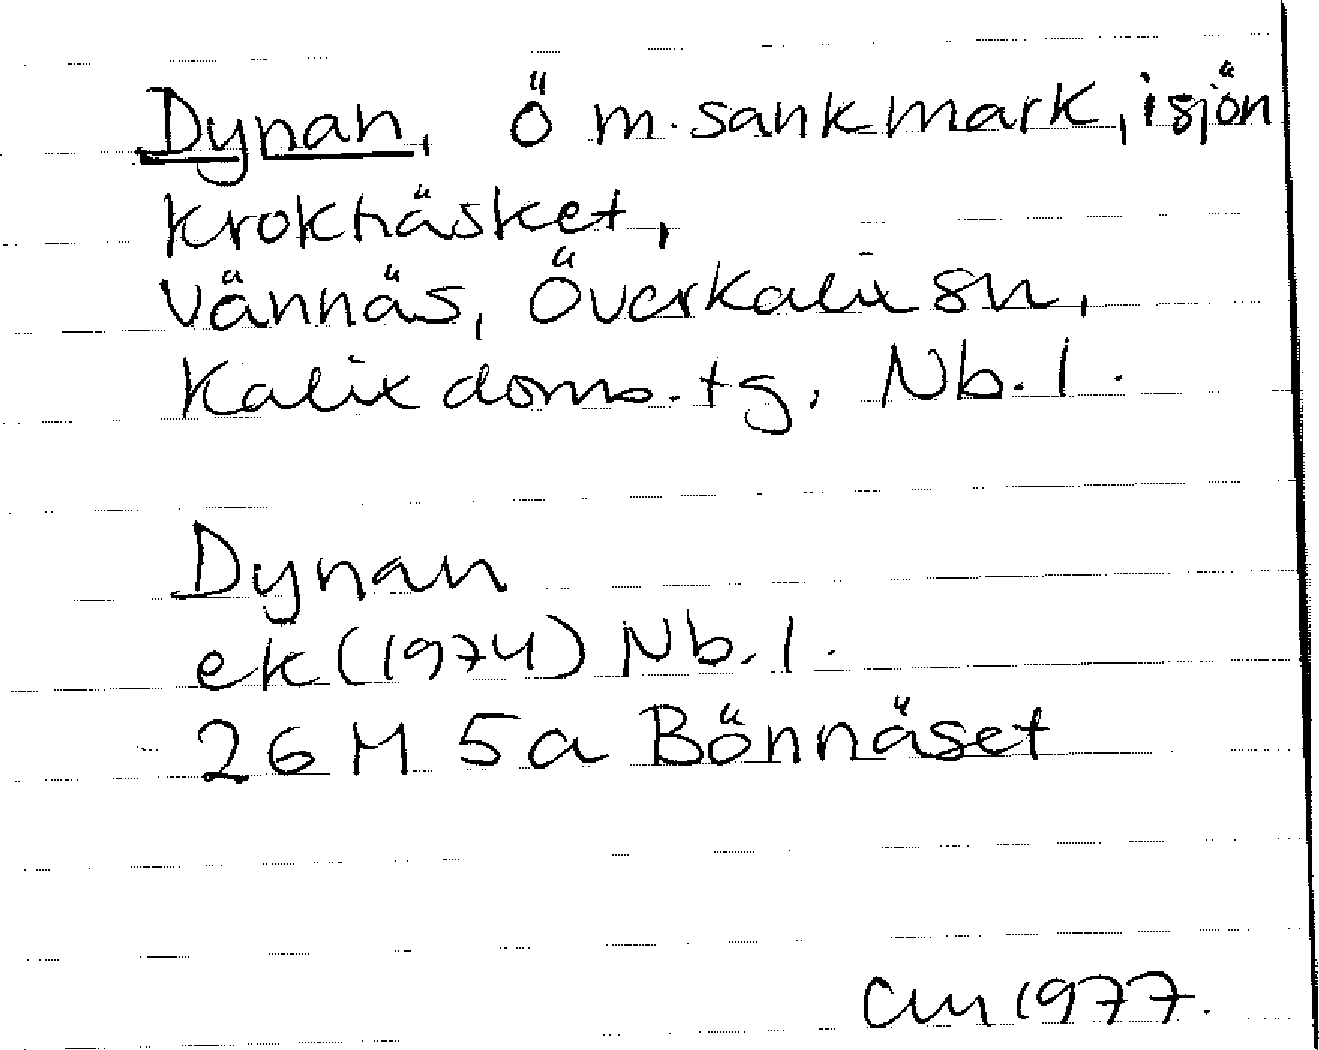 Dynan, Ö m. sankmark, i sjön
Krokträsket,
Vännäs, Överkalix sn,
Kalix doms. tg, Nb. l.
Dynan
ek (1974) Nb. l.
26 M 5a Bönnäset
CM 1977.